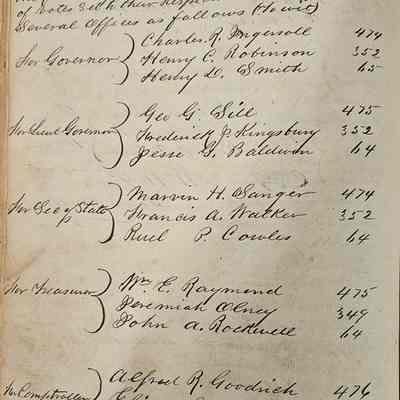 of votes set to their respe
Several Offices as follows (to wit)
Charles R. Ingersoll 474
For Governor Henry C. Robinson 352
Henry D. Smith 65
Geo G. Sill 475
For Lieut Governor Frederick J. Kingsbury 352
Jesse G. Baldwin 64
Marvin H. Sanger 474
For Sec of State Francis A. Walker 352
Ruel P. Cowles 64
Wm. E. Raymond 475
For Treasurer Jeremiah Olney 349
John A. Rockwell 64
Alfred R. Goodrich 476
For Comptroller